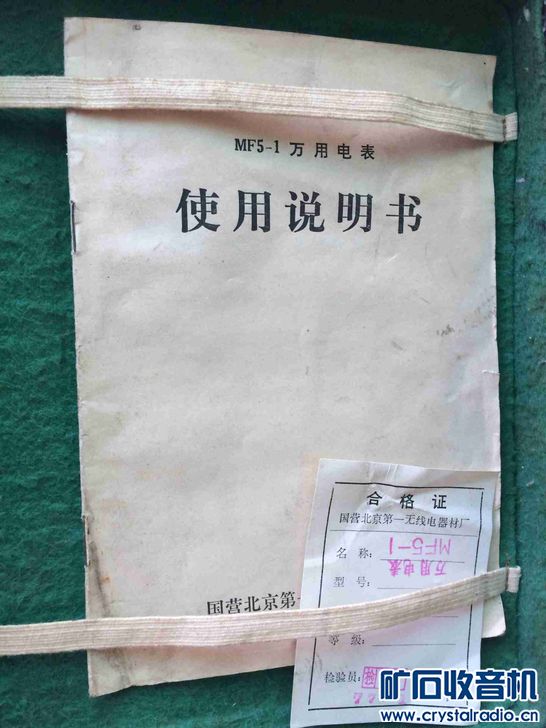 MF5-1 万用电表
使用说明书
国营北京第一
合格证
国营北京第一无线电器材厂
名称：
MF5-1
型号：
万用电表
等级：
检验员：
矿石收音机
www.crystalradio.cn